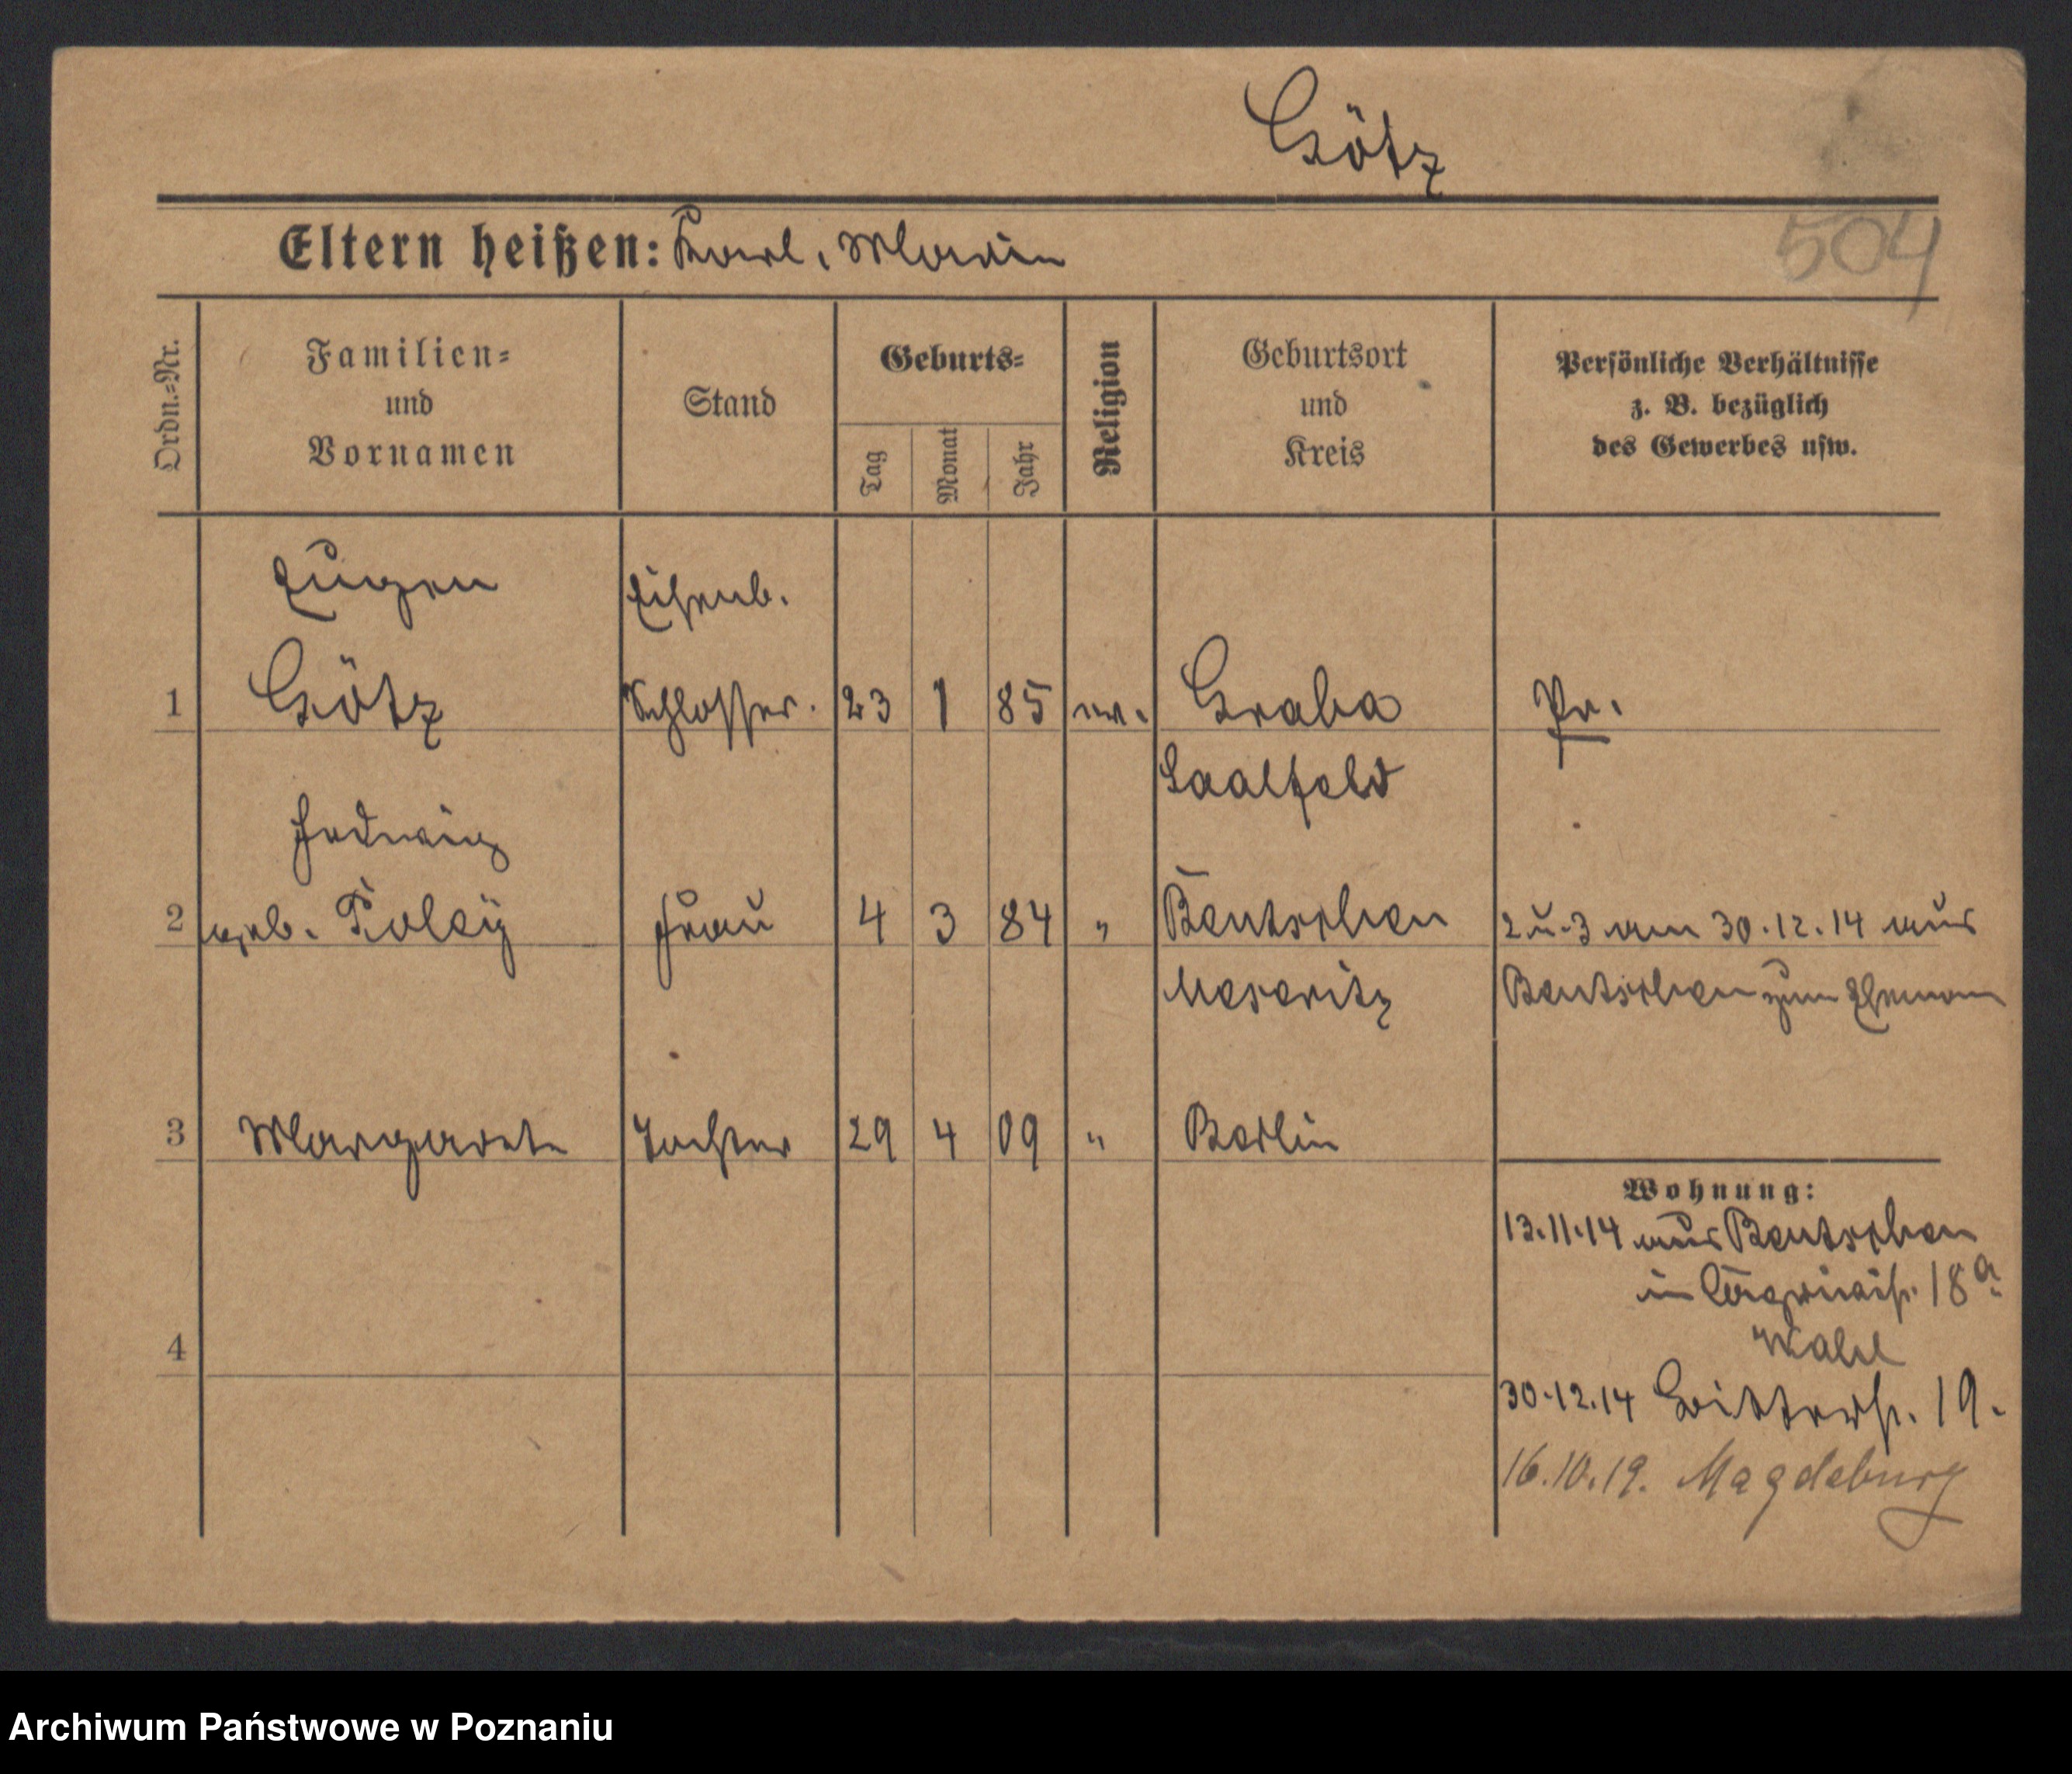 Götz
504
Eltern heißen: Karl, Marie
Ordn.-Nr.
Familien-
und
Vornamen
Stand
Geburts-
Tag
Monat
Jahr
Religion
Geburtsort
und
Kreis
Persönliche Verhältnisse
z. B. bezüglich
des Gewerbes usw.
Eugen Eisenb.
1 Götz Schlosser. 23 1 85 ev. Graba Pr.
Saalfeld
Hedwig
2 geb. Frau 4 3 84 " Bentschen 2 u. 3 am 30.12.14 aus
Meseritz Bentschen zum Ehemann
3 Margarete Tochter 29 4 09 " Berlin
Wohnung:
13.11.14 aus Bentschen
in 18a
4
30.12.14 19.
16.10.19. Magdeburg
Archiwum Państwowe w Poznaniu